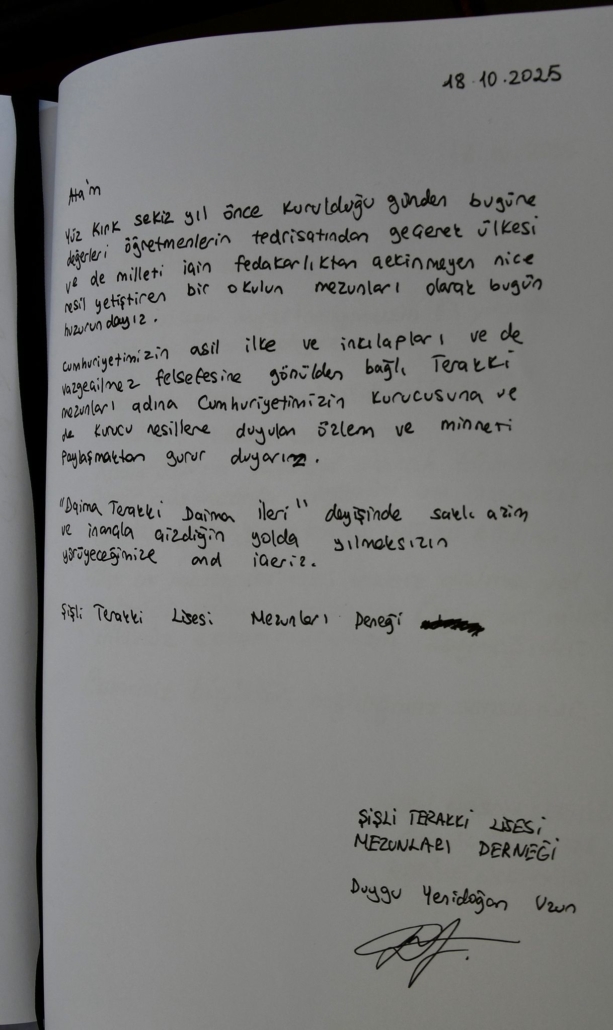 18.10.2025
Ata'm
Yüz Kırk sekiz yıl önce kurulduğu günden bugüne
değerleri öğretmenlerin tedrisatından geçerek ülkesi
ve de milleti için fedakarlıktan çekinmeyen nice
nesil yetiştiren bir okulun mezunları olarak bugün
huzurundayız.
Cumhuriyetimizin asil ilke ve inkılapları ve de
vazgeçilmez felsefesine gönülden bağlı Terakki
mezunları adına Cumhuriyetimizin kurucusuna ve
de kurucu nesillere duyulan özlem ve minneti
paylaşmaktan gurur duyarız.
"Daima Terakki Daima ileri" deyişinde saklı azim
ve inançla çizdiğin yolda yılmaksızın
yürüyeceğimize and içeriz.
Şişli Terakki Lisesi Mezunları Derneği
ŞİŞLİ TERAKKİ LİSESİ
MEZUNLARI DERNEĞİ
Duygu Yenidoğan Uzun